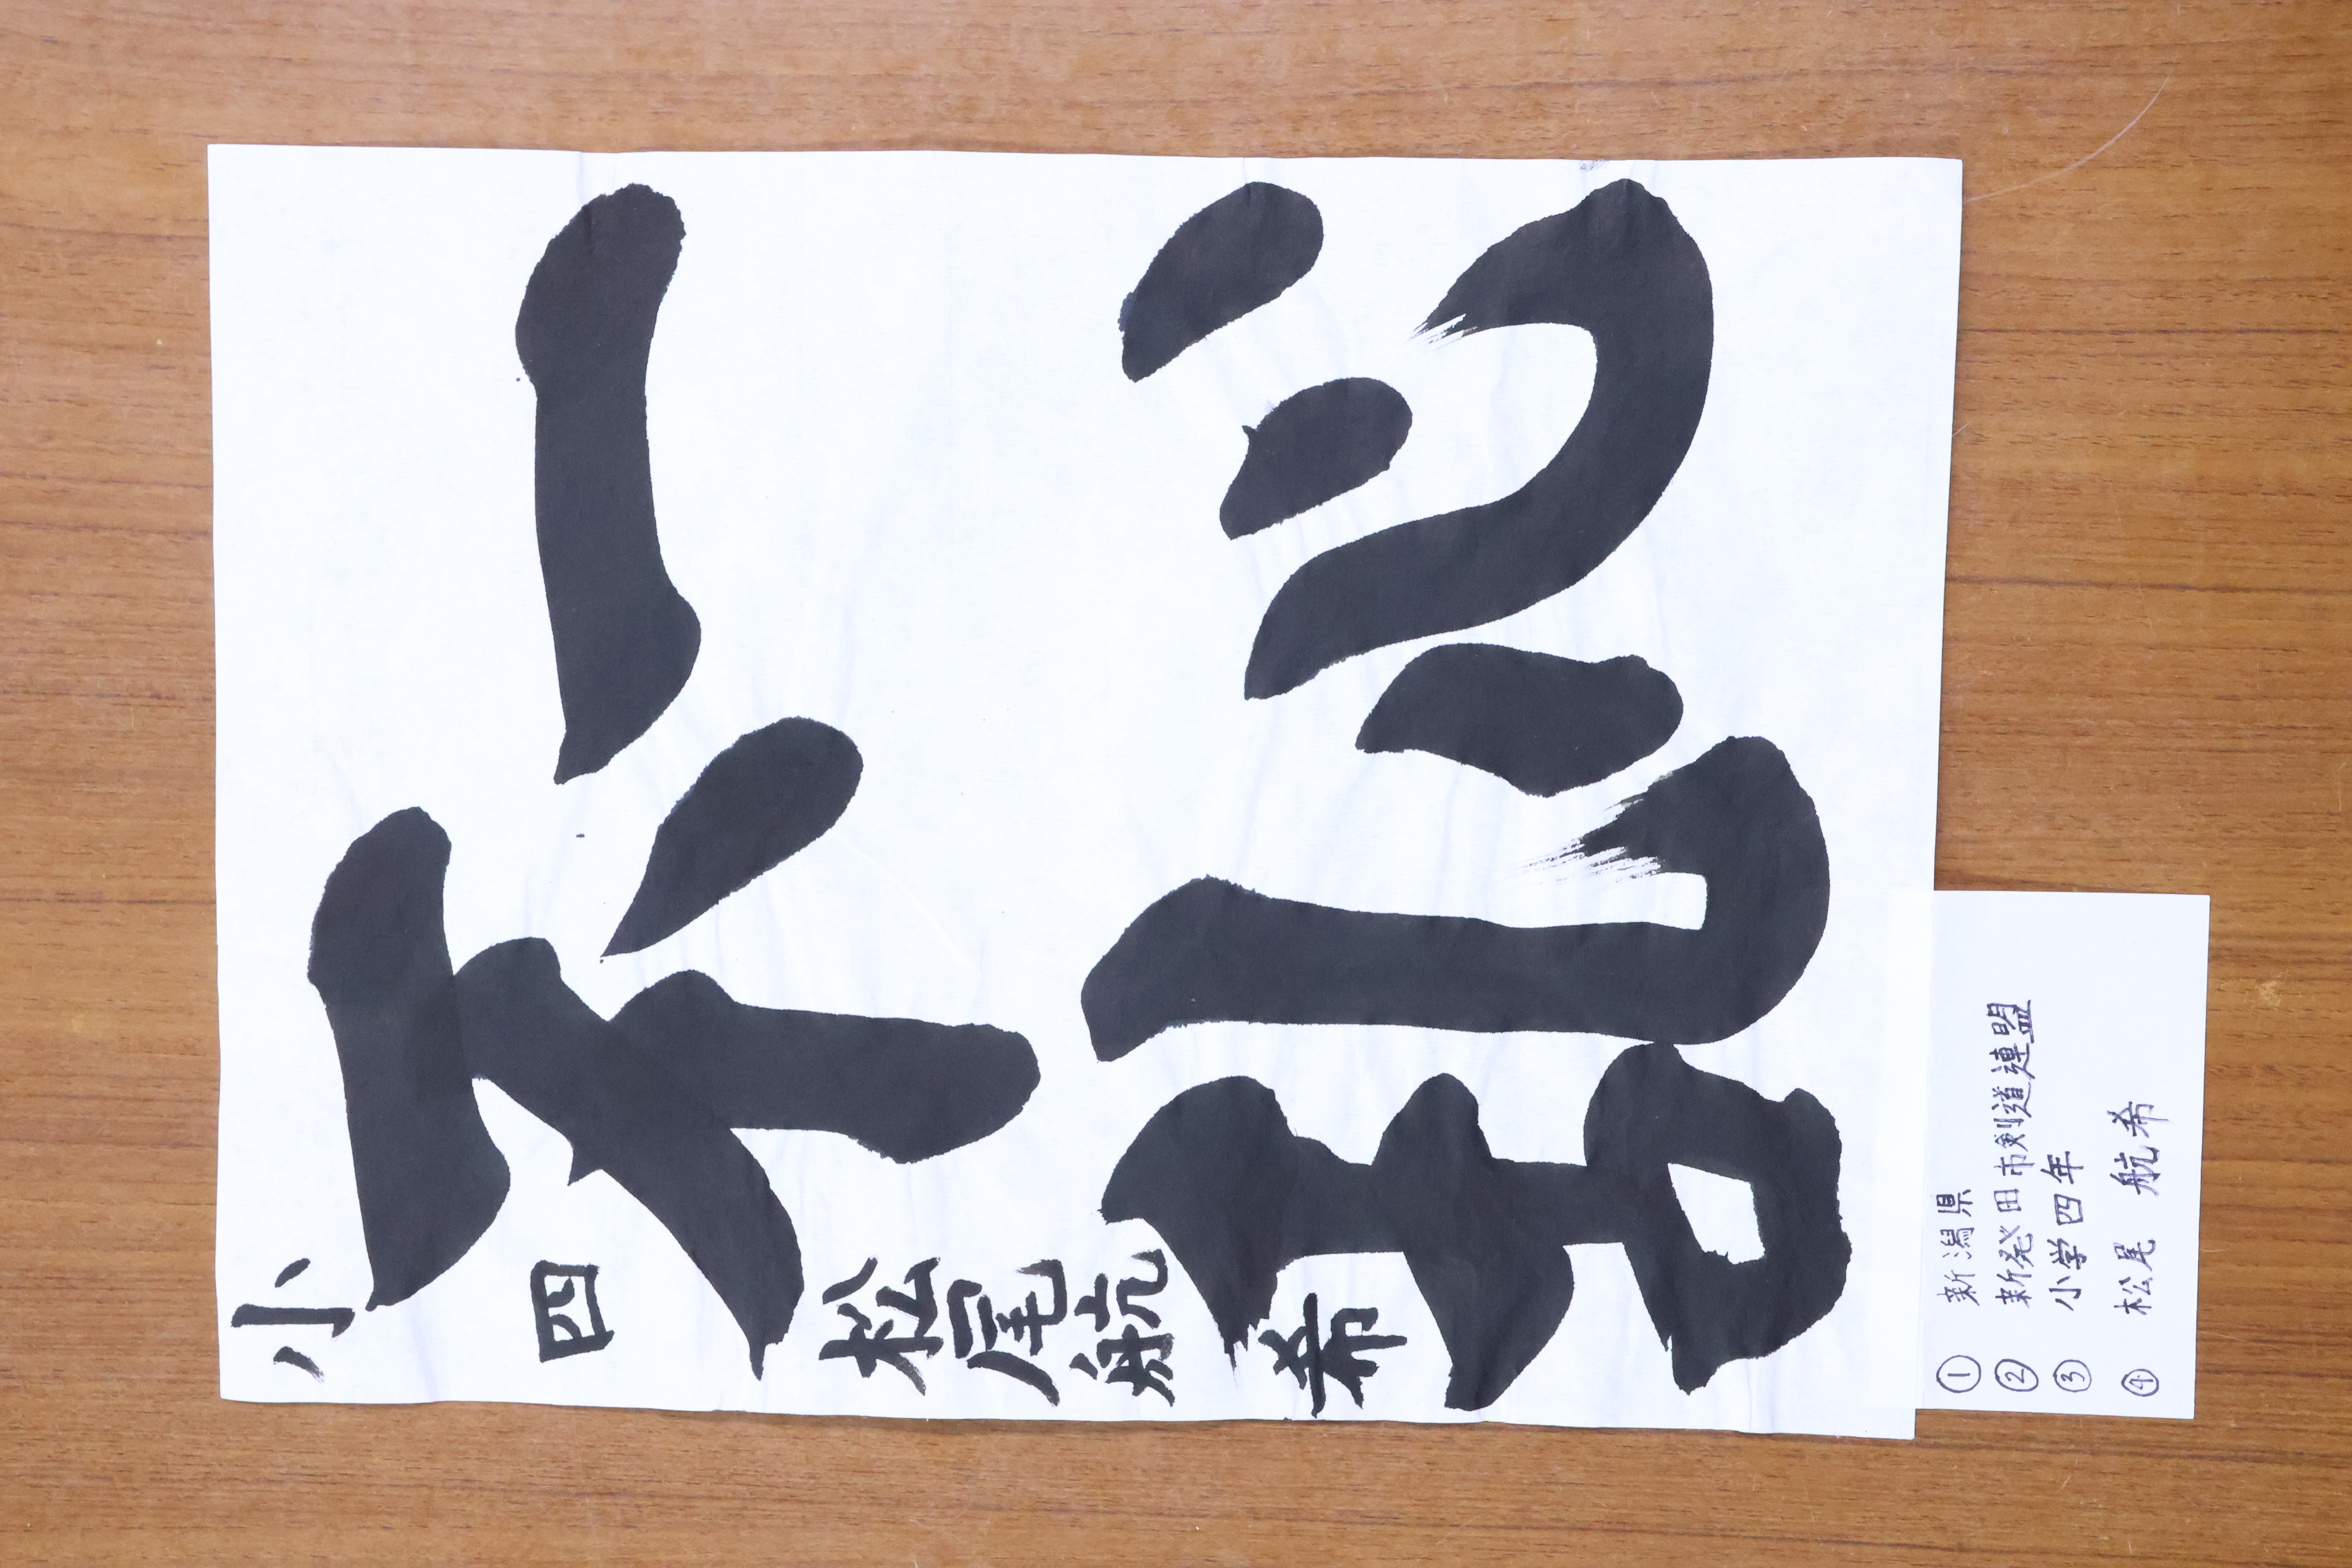 一心
不乱
小四 松尾航希
① 新潟県
② 新発田市剣道連盟
③ 小学四年
④ 松尾 航希